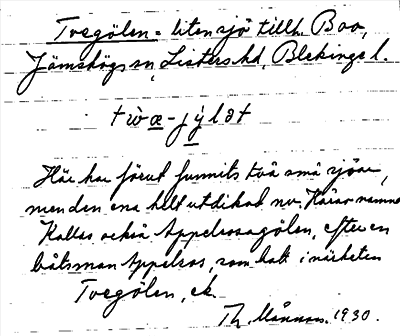 Tvegölen = liten sjö tillh. Boa,
Jämshögs sn, Listers hd, Blekinge l.
twæ̀-jỳlət
Här har förut funnits två små sjöar,
men den ena helt utdikad nu. Härav namnet
Kallas också Appelrosagölen, efter en
båtsman Appelros, som haft i närheten
Tvegölen, ek.
Th. Månsson. 1930.